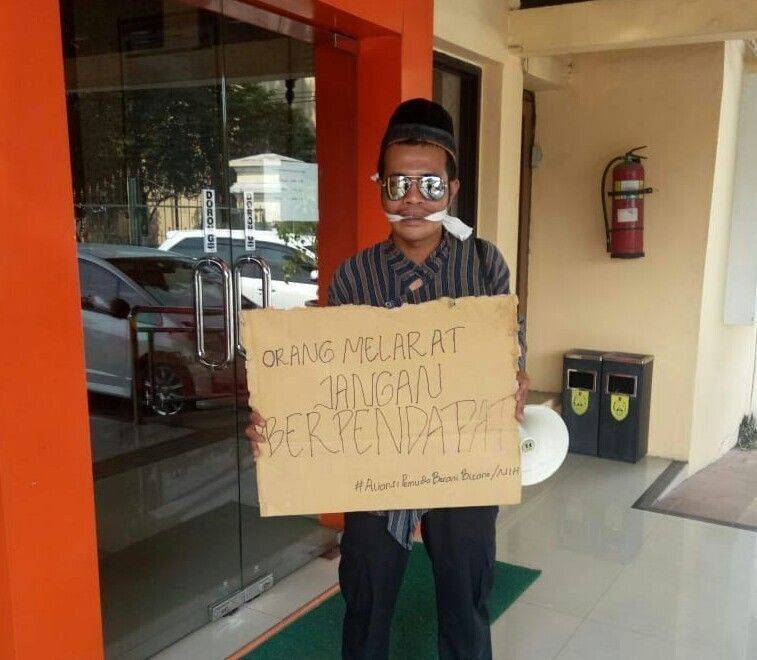 DORONG
DORONG
ORANG MELARAT
JANGAN
BERPENDAPAT
#Aliansi Pemuda Berani Bicara/NIH